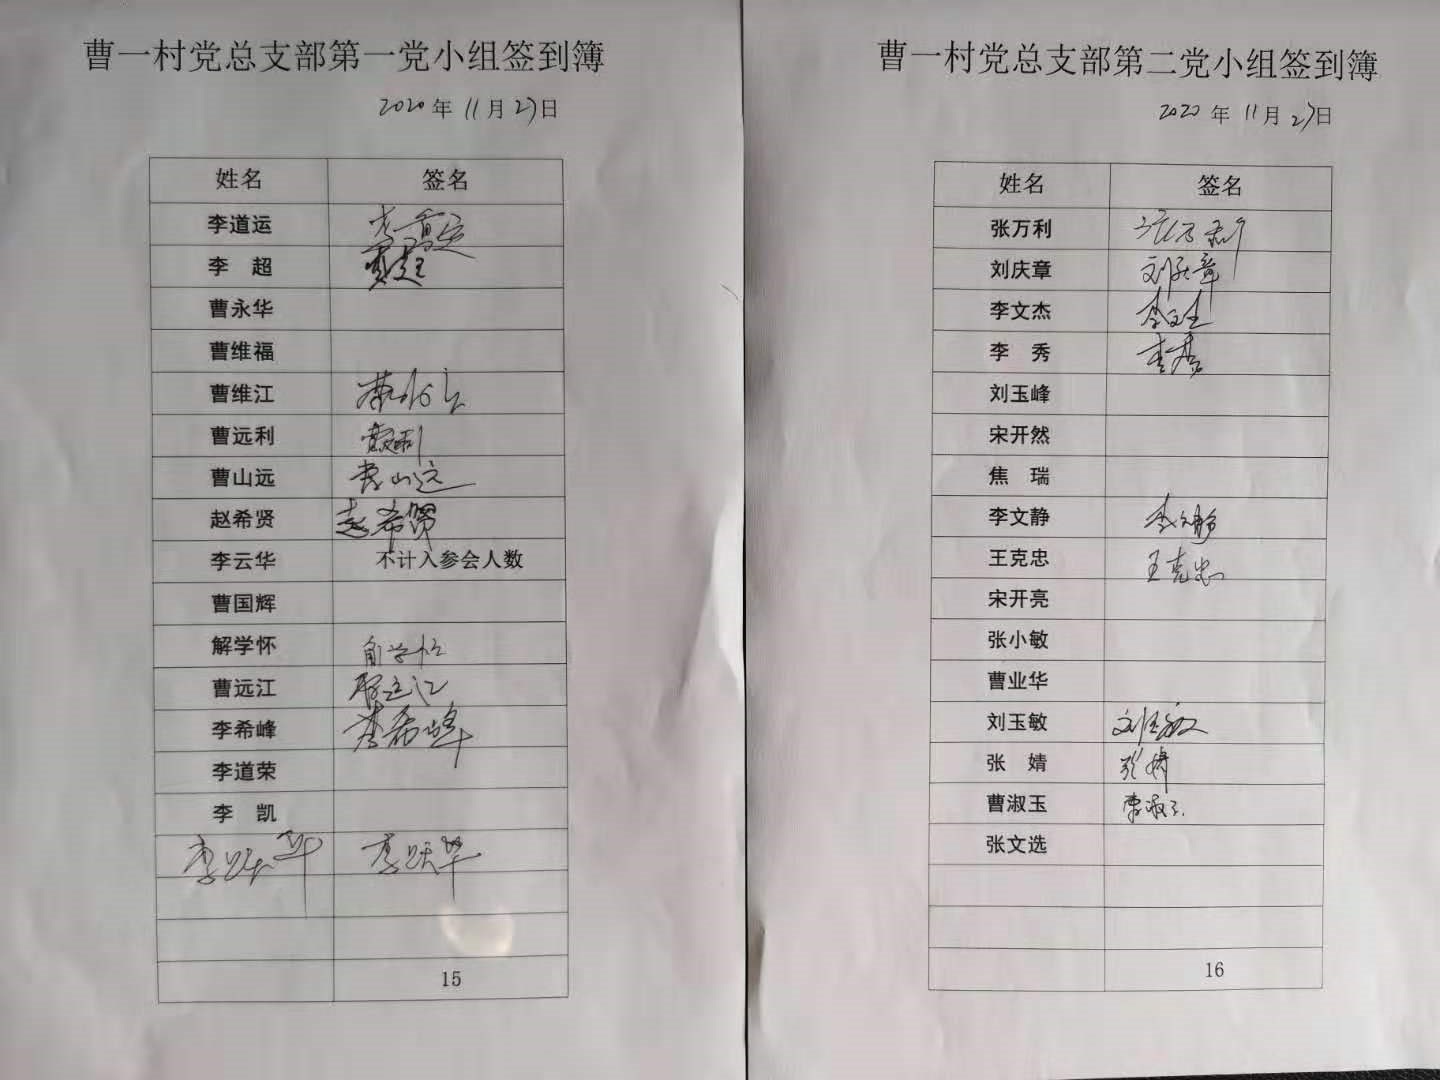 曹一村党总支部第一党小组签到簿
2020年11月27日
姓名 签名
李道运 李道运
李 超 李超
曹永华
曹维福
曹维江 曹维江
曹远利 曹远利
曹山远 曹山远
赵希贤 赵希贤
李云华 不计入参会人数
曹国辉
解学怀 解学怀
曹远江 曹远江
李希峰 李希峰
李道荣
李 凯
李跃华 李跃华
15
曹一村党总支部第二党小组签到簿
2020年11月27日
姓名 签名
张万利 张万利
刘庆章 刘庆章
李文杰 李文杰
李 秀 李秀
刘玉峰
宋开然
焦 瑞
李文静 李文静
王克忠 王克忠
宋开亮
张小敏
曹业华
刘玉敏 刘玉敏
张 婧 张婧
曹淑玉 曹淑玉
张文选
16